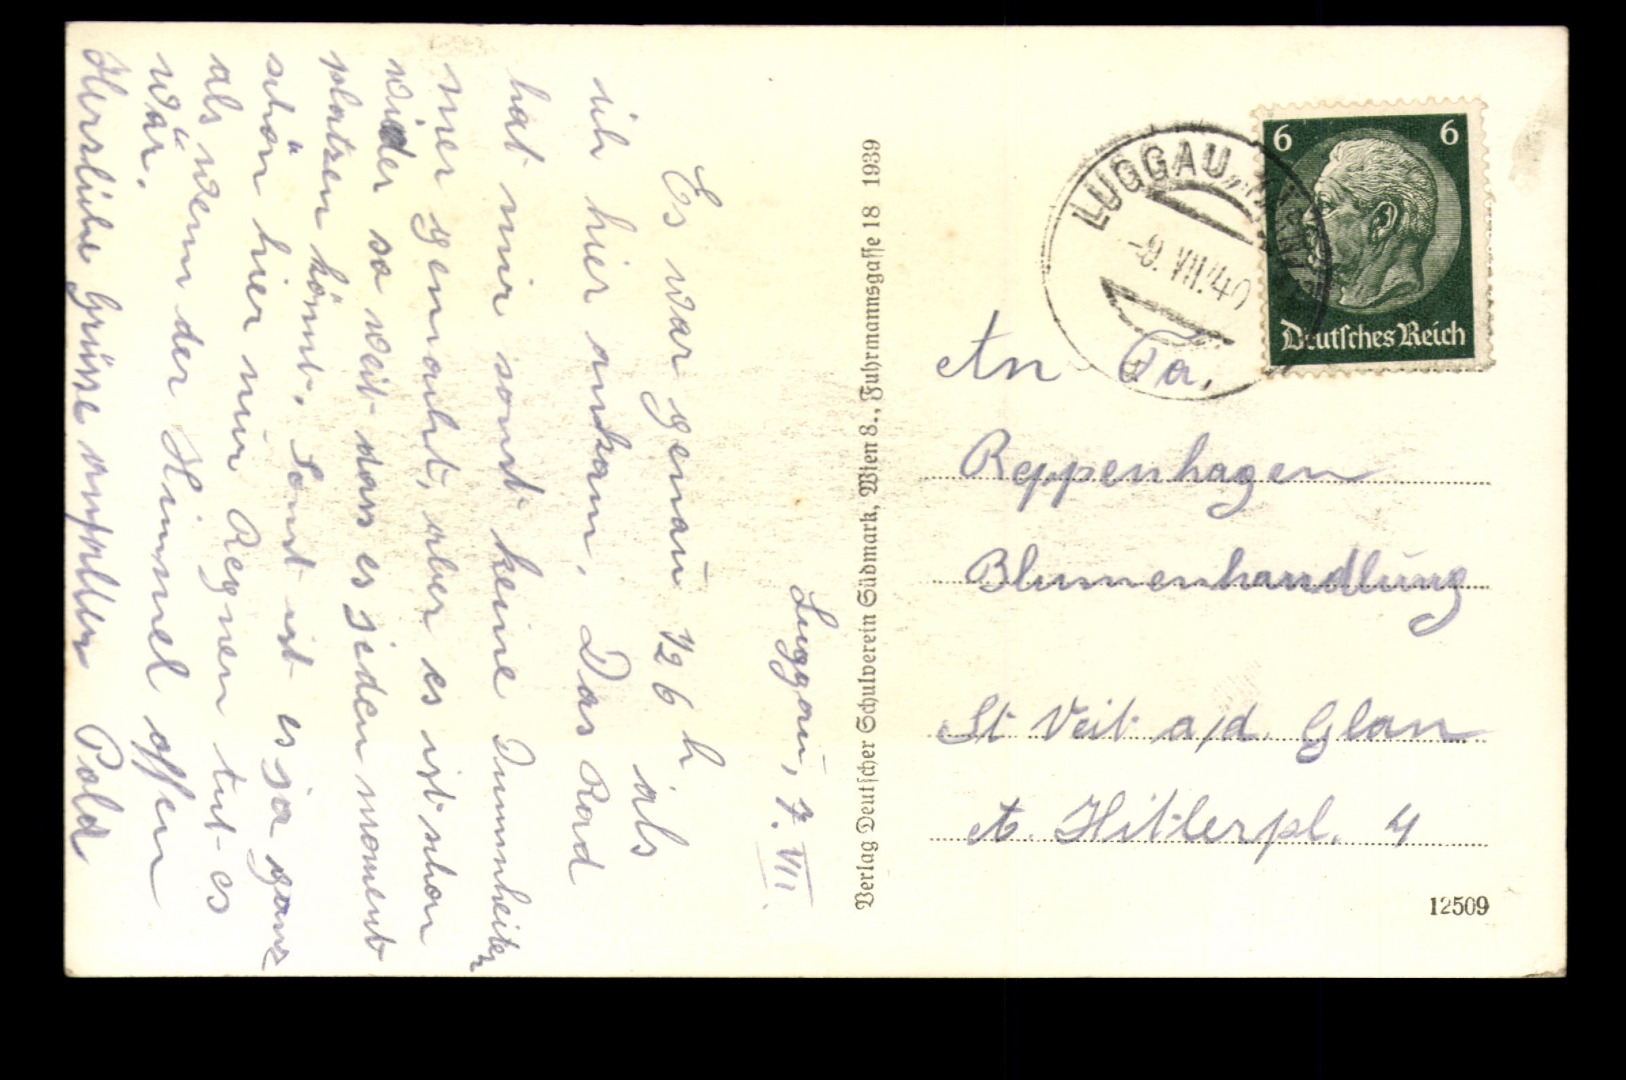 Luggau, 7. VII.
Es war genau 1/2 6 h als
ich hier ankam. Das Rad
hat mir sonst keine Dummheiten
mer gemacht, aber es ist schon
wider so weit dass es jeden moment
platzen könnt. Sonst ist es ja ganz
schön hier nur Regnen tut es
als wenn der Himmel offen
wär.
Herzliche Grüsse Pold
Verlag Deutscher Schulverein Südmark, Wien 8., Fuhrmannsgasse 18 1939
LUGGAU
-9. VII. 40
6 6
Deutsches Reich
An Fa.
Reppenhagen
Blumenhandlung
St Veit a/d. Glan
A. Hitlerpl. 4
12509